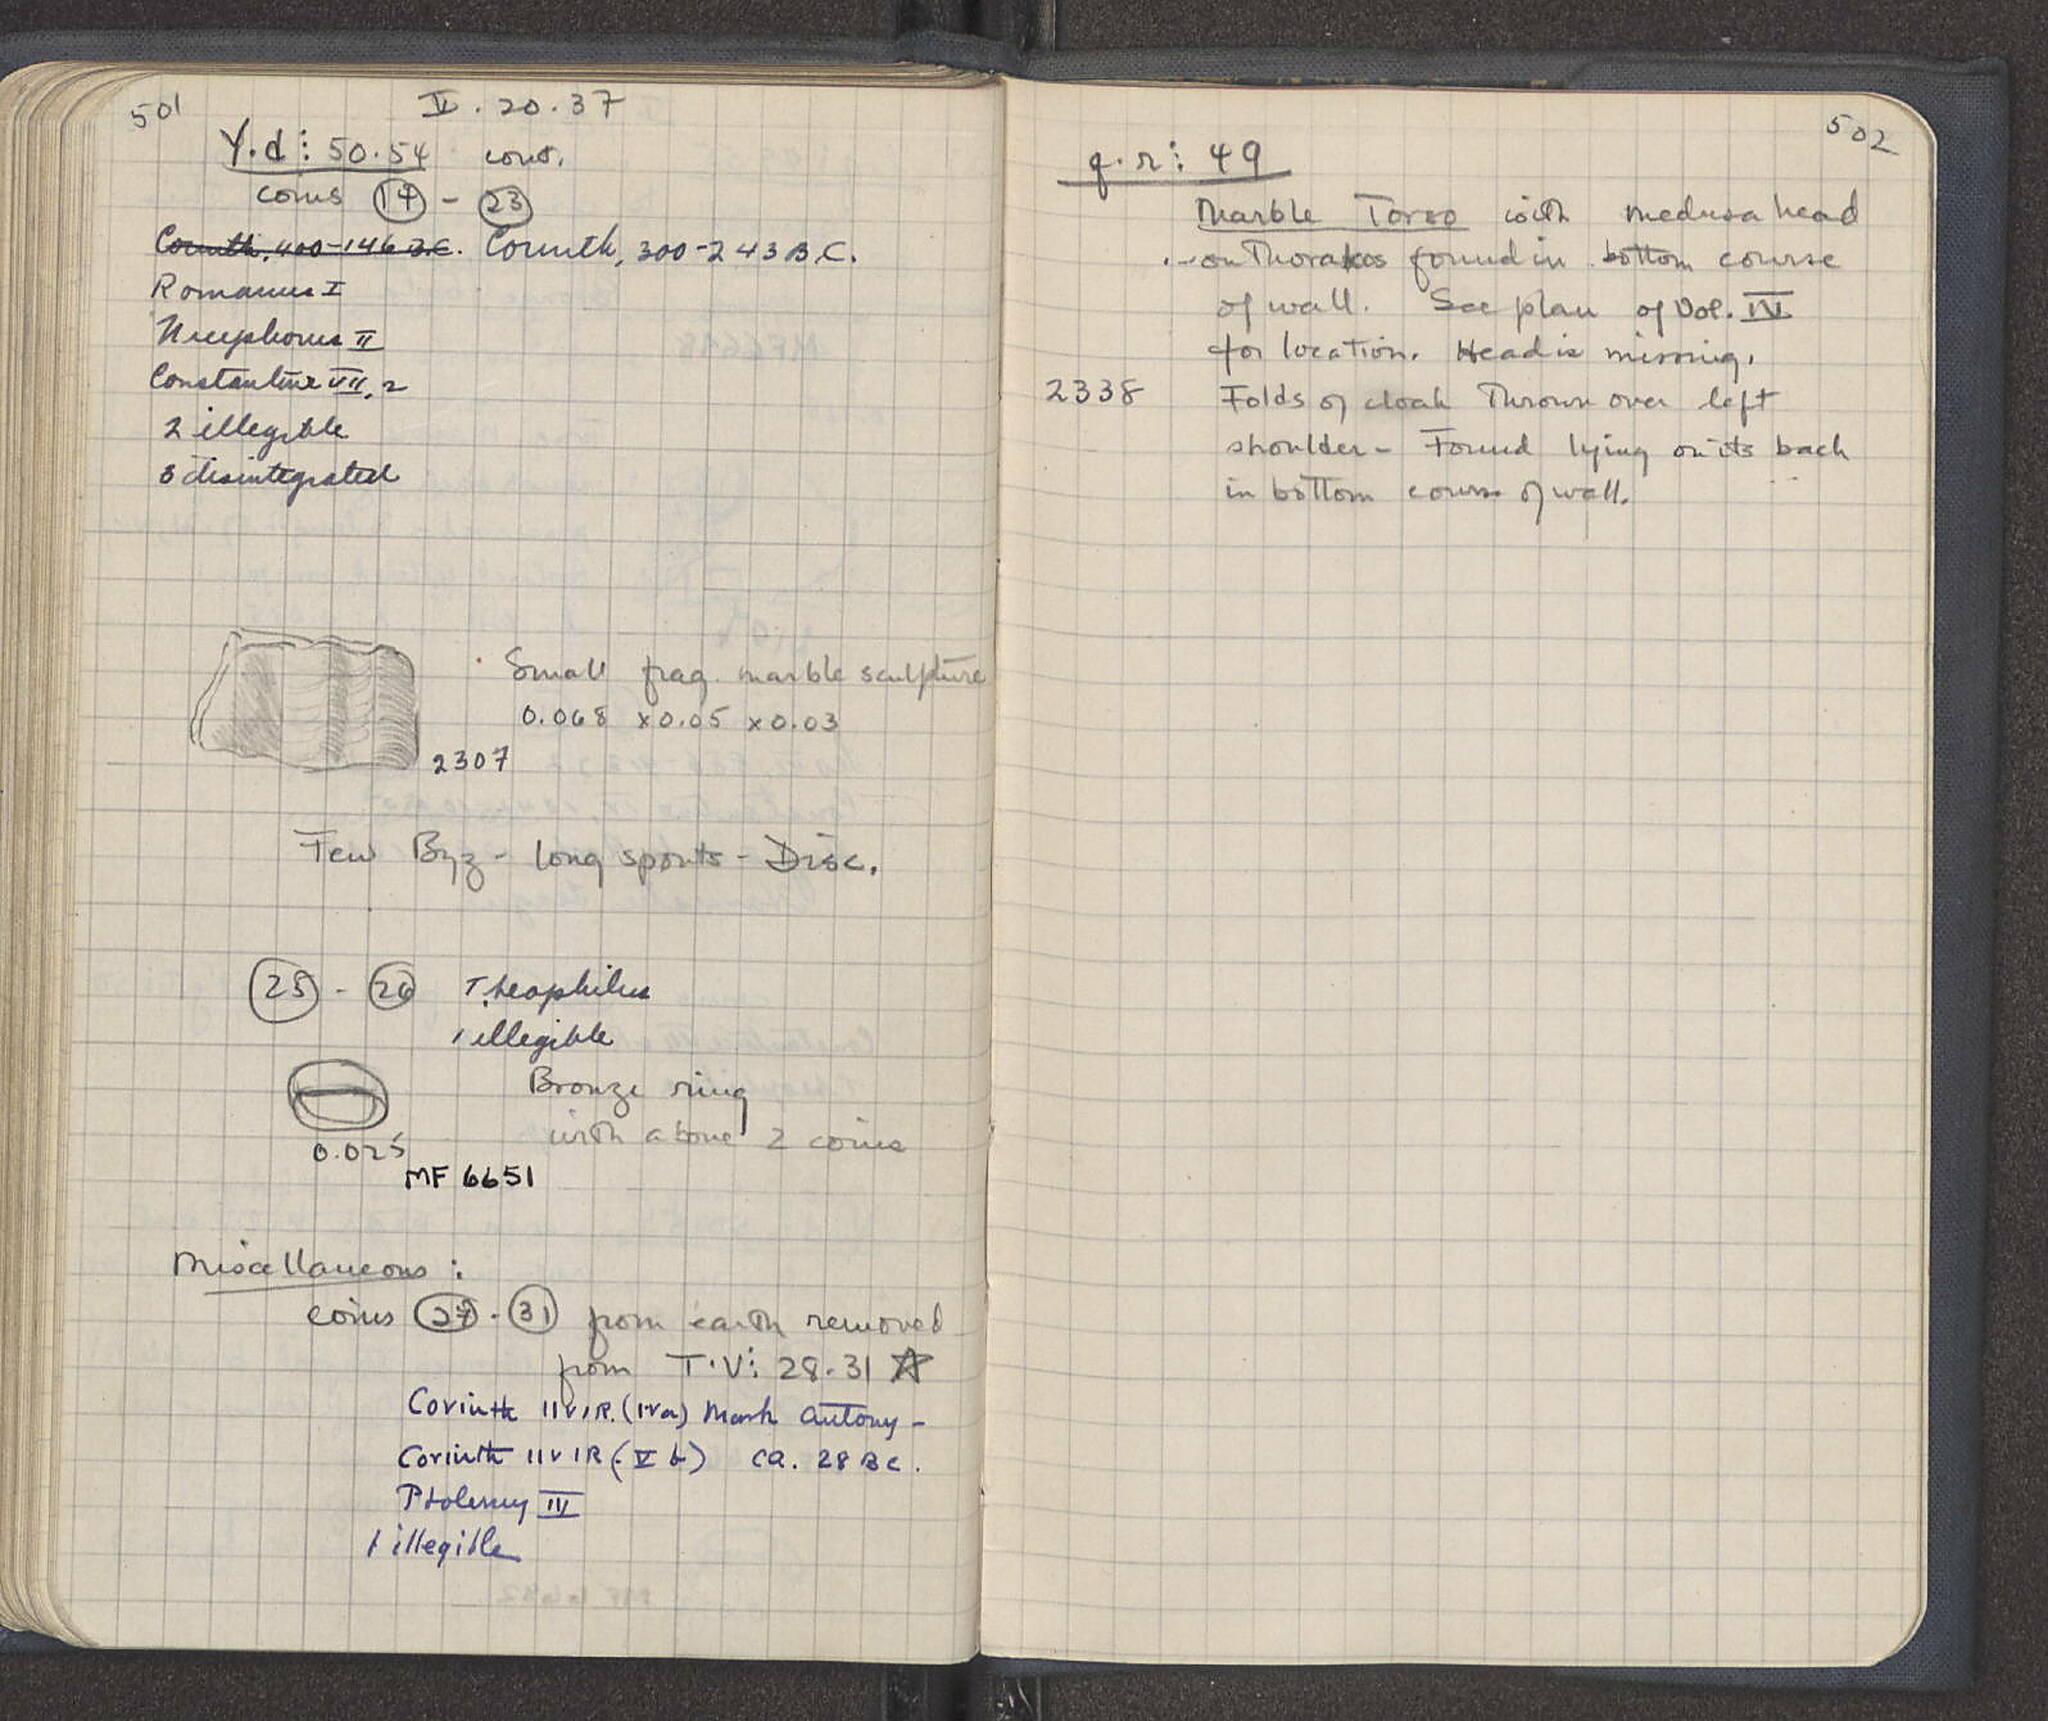 501
V. 20. 37
Y.d: 50.54 cont.
coins 14 - 23
Corinth, 400-146 B.C. Corinth, 300-243 B.C.
Romanus I
Nicephorus II
Constantine VII, 2
2 illegible
3 disintegrated
Small frag. marble sculpture
0.068 x 0.05 x 0.03
2307
Few Byz - long spouts - Disc.
25 - 26 Theophilus
1 illegible
Bronze ring
with above 2 coins
0.025
MF 6651
Miscellaneous:
coins 27 - 31 from earth removed
from T.V: 28-31
Corinth IIVIR. (IVa) Mark Antony -
Corinth IIVIR (V b) ca. 28 BC.
Ptolemy IV
1 illegible
502
q.r: 49
Marble Torso with medusa head
on Thorakos found in bottom course
of wall. See plan of Vol. IV
for location. Head is missing.
2338 Folds of cloak thrown over left
shoulder - Found lying on its back
in bottom course of wall.